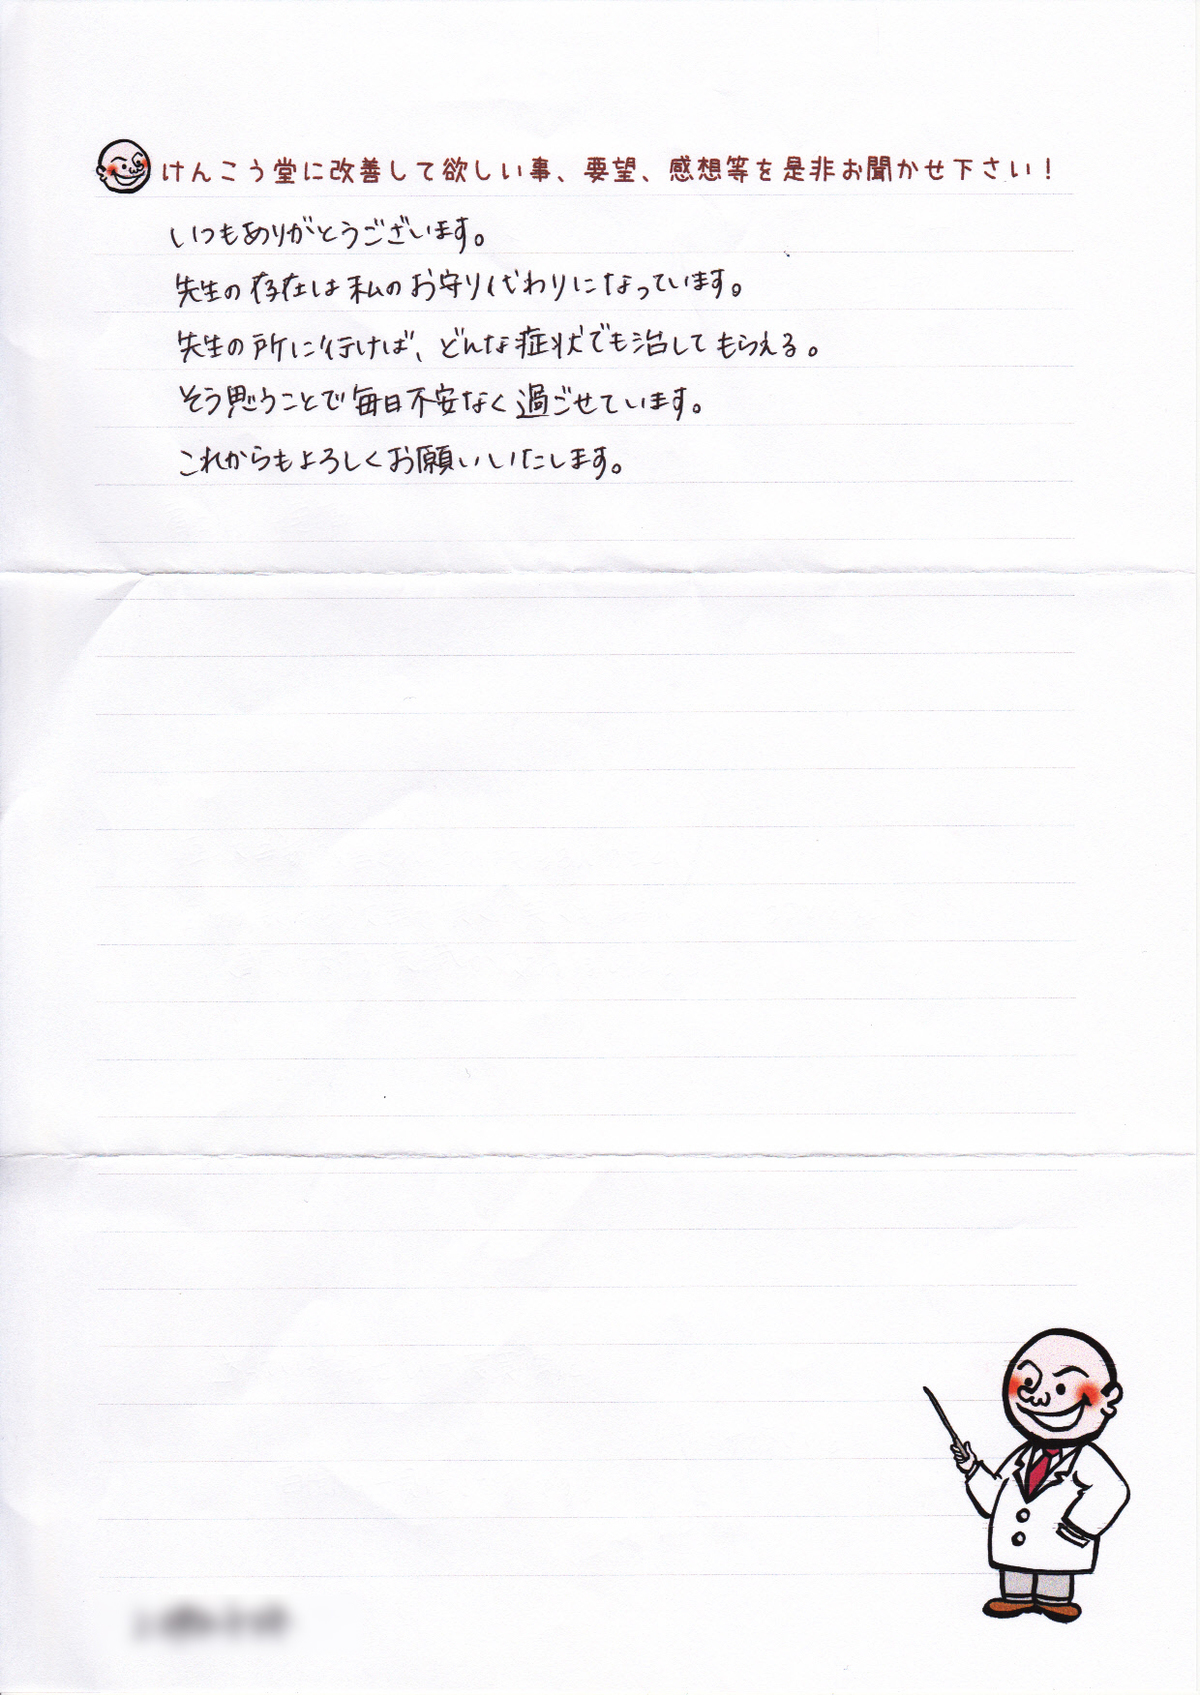 けんこう堂に改善して欲しい事、要望、感想等を是非お聞かせ下さい！
いつもありがとうございます。
先生の存在は私のお守り代わりになっています。
先生の所に行けば、どんな症状でも治してもらえる。
そう思うことで毎日不安なく過ごせています。
これからもよろしくお願いいたします。